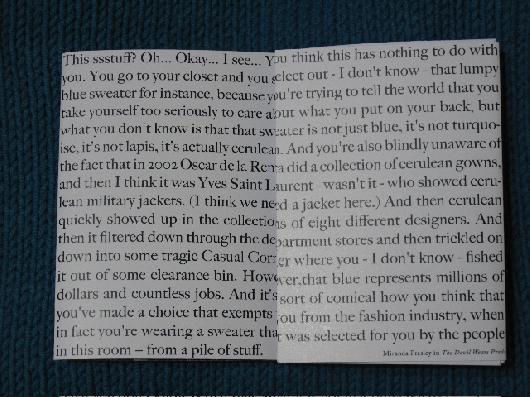 This ssstuff? Oh... Okay... I see... You think this has nothing to do with
you. You go to your closet and you select out - I don't know - that lumpy
blue sweater for instance, because you're trying to tell the world that you
take yourself too seriously to care about what you put on your back, but
what you don't know is that that sweater is not just blue, it's not turquo-
ise, it's not lapis, it's actually cerulean. And you're also blindly unaware of
the fact that in 2002 Oscar de la Renta did a collection of cerulean gowns,
and then I think it was Yves Saint Laurent wasn't it - who showed ceru-
lean military jackers. (I think we need a jacket here.) And then cerulean
quickly showed up in the collections of eight different designers. And
then it filtered down through the department stores and then trickled on
down into some tragic Casual Corner where you - I don't know - fished
it out of some clearance bin. However, that blue represents millions of
dollars and countless jobs. And it's sort of comical how you think that
you've made a choice that exempts you from the fashion industry, when
in fact you're wearing a sweater that was selected for you by the people
in this room – from a pile of stuff.
Miranda Priestly in The Devil Wears Prada